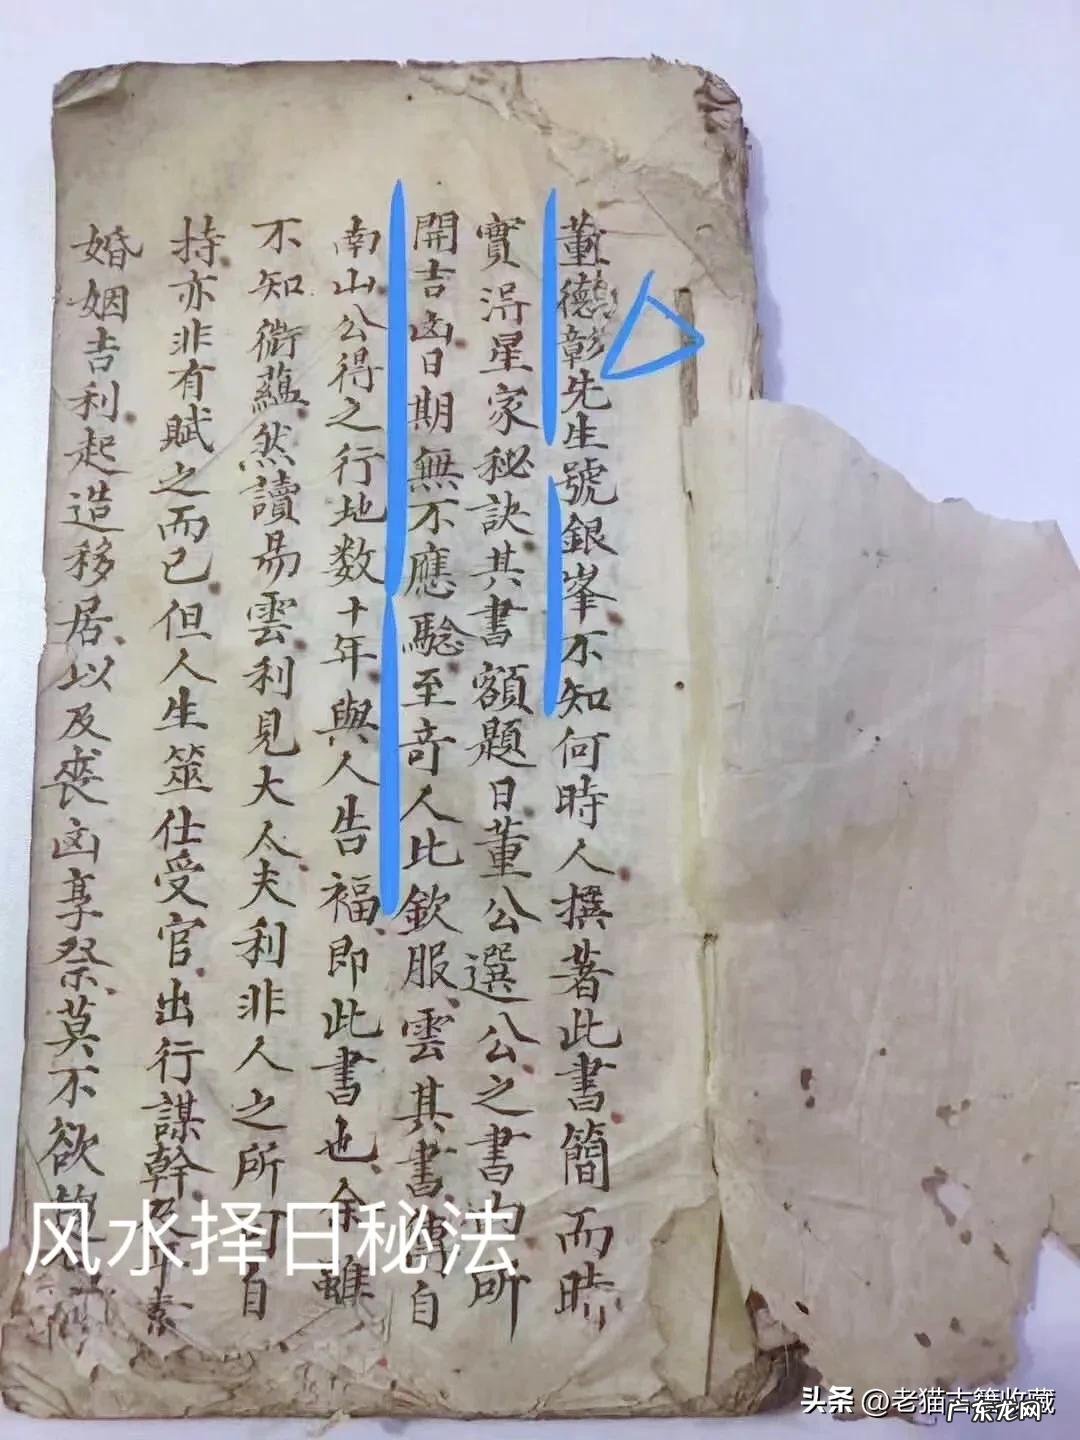 董德彰先生號銀峯不知何時人撰著此書簡而時
實淂星家秘訣其書額題曰董公選公之書内所
開吉凶日期無不應騐至奇人比欽服雲其書傳自
南山公得之行地数十年與人告福即此書也余雖
不知術蘊然讀易雲利見大人夫利非人之所自
持亦非有賦之而已但人生筮仕受官出行謀幹素
婚姻吉利起造移居以及喪凶享祭莫不欲
风水择日秘法
头条 @老猫古籍收藏
广东龙网